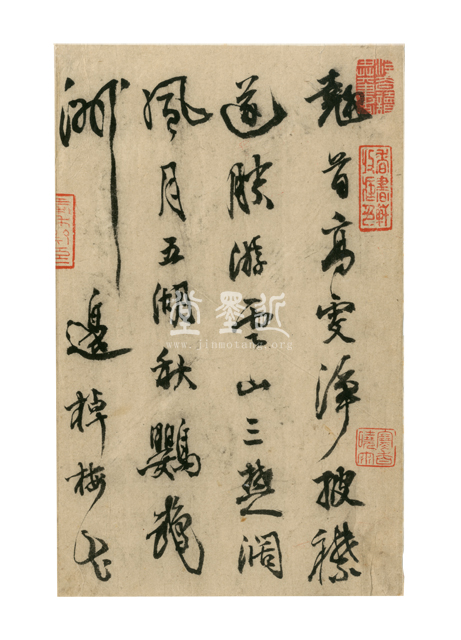 翹首高雯淨披襟
遂勝游雲山三楚濶
風月五湖秋鸚鵡
洲邊棹梅花
近墨堂
www.jinmotang.org